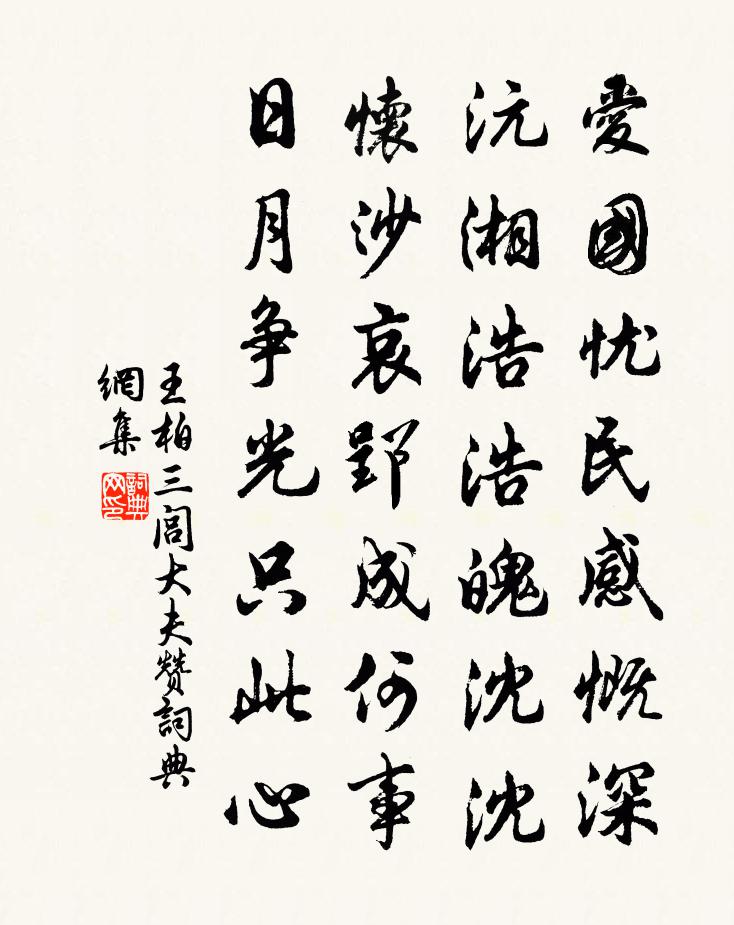 愛國忧民感慨深
沅湘浩浩魄沈沈
懷沙哀郢成何事
日月争光只此心
王柏三閭大夫赞詞典
網集
詞典网印